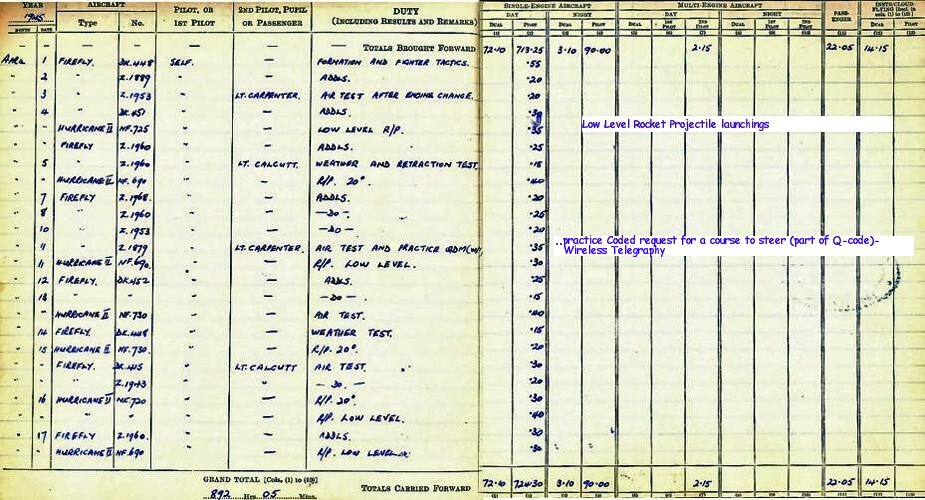 YEAR 1945 AIRCRAFT PILOT, OR 1ST PILOT 2ND PILOT, PUPIL OR PASSENGER DUTY (INCLUDING RESULTS AND REMARKS) SINGLE-ENGINE AIRCRAFT MULTI-ENGINE AIRCRAFT PASSENGER INSTR/CLOUD FLYING [Incl. in cols. (1) to (10)]
MONTH DATE Type No. DAY NIGHT DAY NIGHT
DUAL PILOT DUAL PILOT DUAL 1ST PILOT 2ND PILOT DUAL 1ST PILOT 2ND PILOT DUAL PILOT
(1) (2) (3) (4) (5) (6) (7) (8) (9) (10) (11) (12) (13)
— — — — — TOTALS BROUGHT FORWARD 72.10 713.25 3.10 90.00 2.15 22.05 14.15
APRIL 1 FIREFLY. DK.448 SELF. — FORMATION AND FIGHTER TACTICS. .55
" 2 " Z.1889 " — ADDLS. .20
" 3 " Z.1953 " LT. CARPENTER. AIR TEST AFTER ENGINE CHANGE. .20
" 4 " DK.451 " — ADDLS. .30
" HURRICANE II NF.725 " — LOW LEVEL R/P. .35 Low Level Rocket Projectile launchings
" FIREFLY Z.1960 " — ADDLS. .25
" 5 " Z.1960 " LT. CALCUTT. WEATHER AND RETRACTION TEST. .15
" HURRICANE II NF.690 " — R/P. 20°. .40
" 7 FIREFLY Z.1968. " — ADDLS. .20
" 8 " Z.1960 " — —DO—. .25
" 10 " Z.1953 " — —DO—. .20
" 11 " Z.1879 " LT. CARPENTER. AIR TEST AND PRACTICE QDM(W/ .35 ..practice Coded request for a course to steer (part of Q-code)-
Wireless Telegraphy
" 11 HURRICANE II NF.690. " — R/P. LOW LEVEL. .30
" 12 FIREFLY. DK.452 " — ADDLS. .25
" 13 " " " — —DO—. .15
" HURRICANE II NF.730 " — AIR TEST. .40
" 14 FIREFLY. DK.448 " — WEATHER TEST. .15
" 15 HURRICANE II NF.730. " — R/P. 20°. .20
" FIREFLY. DK.415 " LT. CALCUTT AIR TEST. .30
" " Z.1943 " " — DO. — .20
" 16 HURRICANE II NF.720 " — R/P. 20°. .30
" " " " — R/P. LOW LEVEL. .40
" 17 FIREFLY Z.1960. " — ADDLS. .30
" HURRICANE II NF.690 " — R/P. LOW LEVEL. .30
GRAND TOTAL [Cols. (1) to (10)]
892 Hrs. 05 Mins. TOTALS CARRIED FORWARD 72.10 724.30 3.10 90.00 2.15 22.05 14.15
(1) (2) (3) (4) (5) (6) (7) (8) (9) (10) (11) (12) (13)